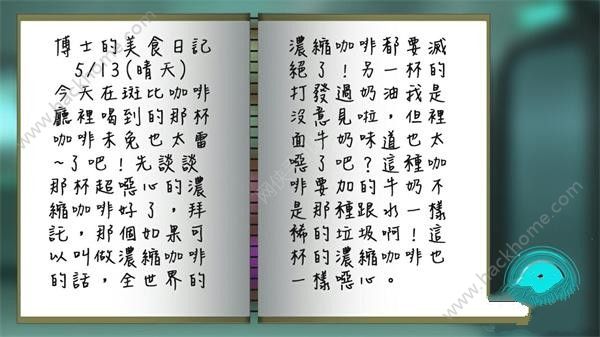 博士的美食日記
5/13(晴天)
今天在斑比咖啡
廳裡喝到的那杯
咖啡未免也太雷
~了吧！先談談
那杯超噁心的濃
縮咖啡好了，拜
託，那個如果可
以叫做濃縮咖啡
的話，全世界的
濃縮咖啡都要滅
絕了！另一杯的
打發過奶油我是
沒意見啦，但裡
面牛奶味道也太
噁了吧？這種咖
啡要加的牛奶不
是那種跟水一樣
稀的垃圾啊！這
杯的濃縮咖啡也
一樣噁心。
www.hackhome.com